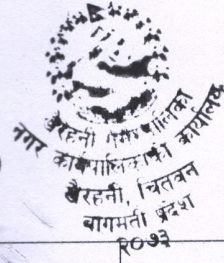 खैरहनी नगरपालिका
नगर कार्यपालिकाको कार्यालय
खैरहनी, चितवन
बागमती प्रदेश
२०७३